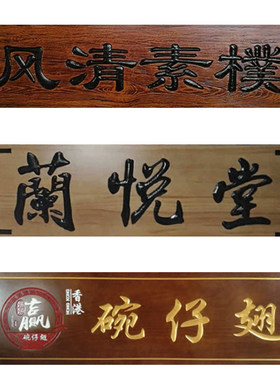 风清素樸
蘭悦堂
赢
碗仔翅
香港
碗仔翅